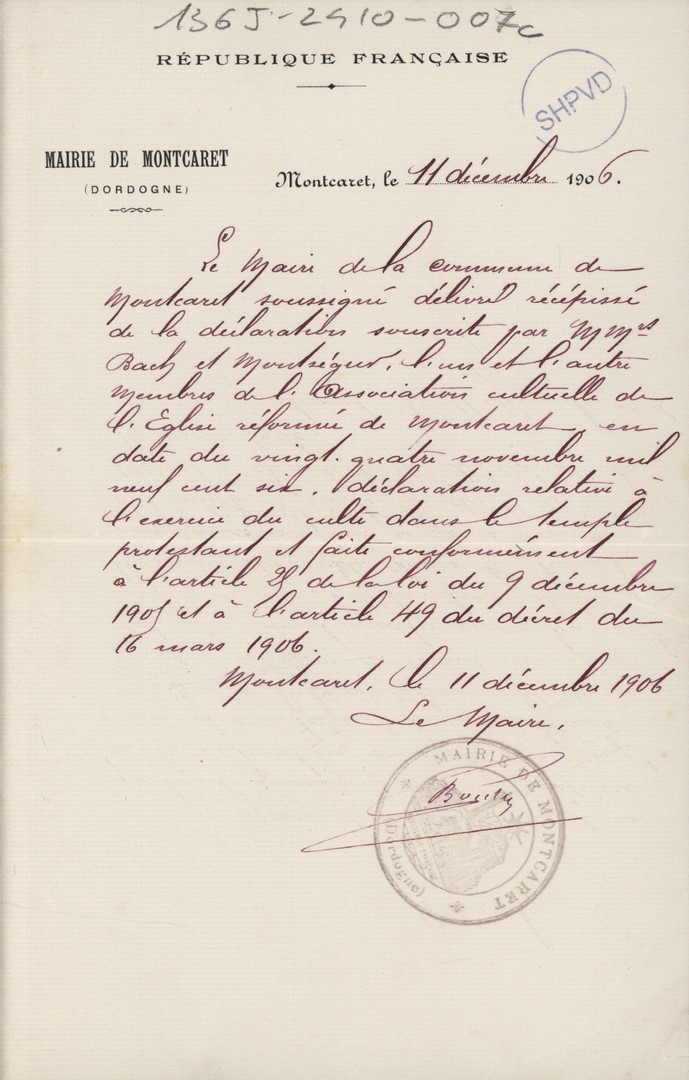 136J-2410-007c
RÉPUBLIQUE FRANÇAISE
SHPVD
MAIRIE DE MONTCARET
(DORDOGNE)
Montcaret, le 11 décembre 1906.
Le Maire de la commune de
Montcaret soussigné délivre récépissé
de la déclaration souscrite par MMrs
Bach et Montségur, l'un et l'autre
membres de l'Association cultuelle de
l'Eglise réformée de Montcaret, en
date du vingt-quatre novembre mil
neuf cent six, déclaration relative à
l'exercice du culte dans le temple
protestant et faite conformément
à l'article 25 de la loi du 9 décembre
1905 et à l'article 49 du décret du
16 mars 1906.
Montcaret, le 11 décembre 1906
Le Maire,
MAIRIE DE MONTCARET
(Dordogne)